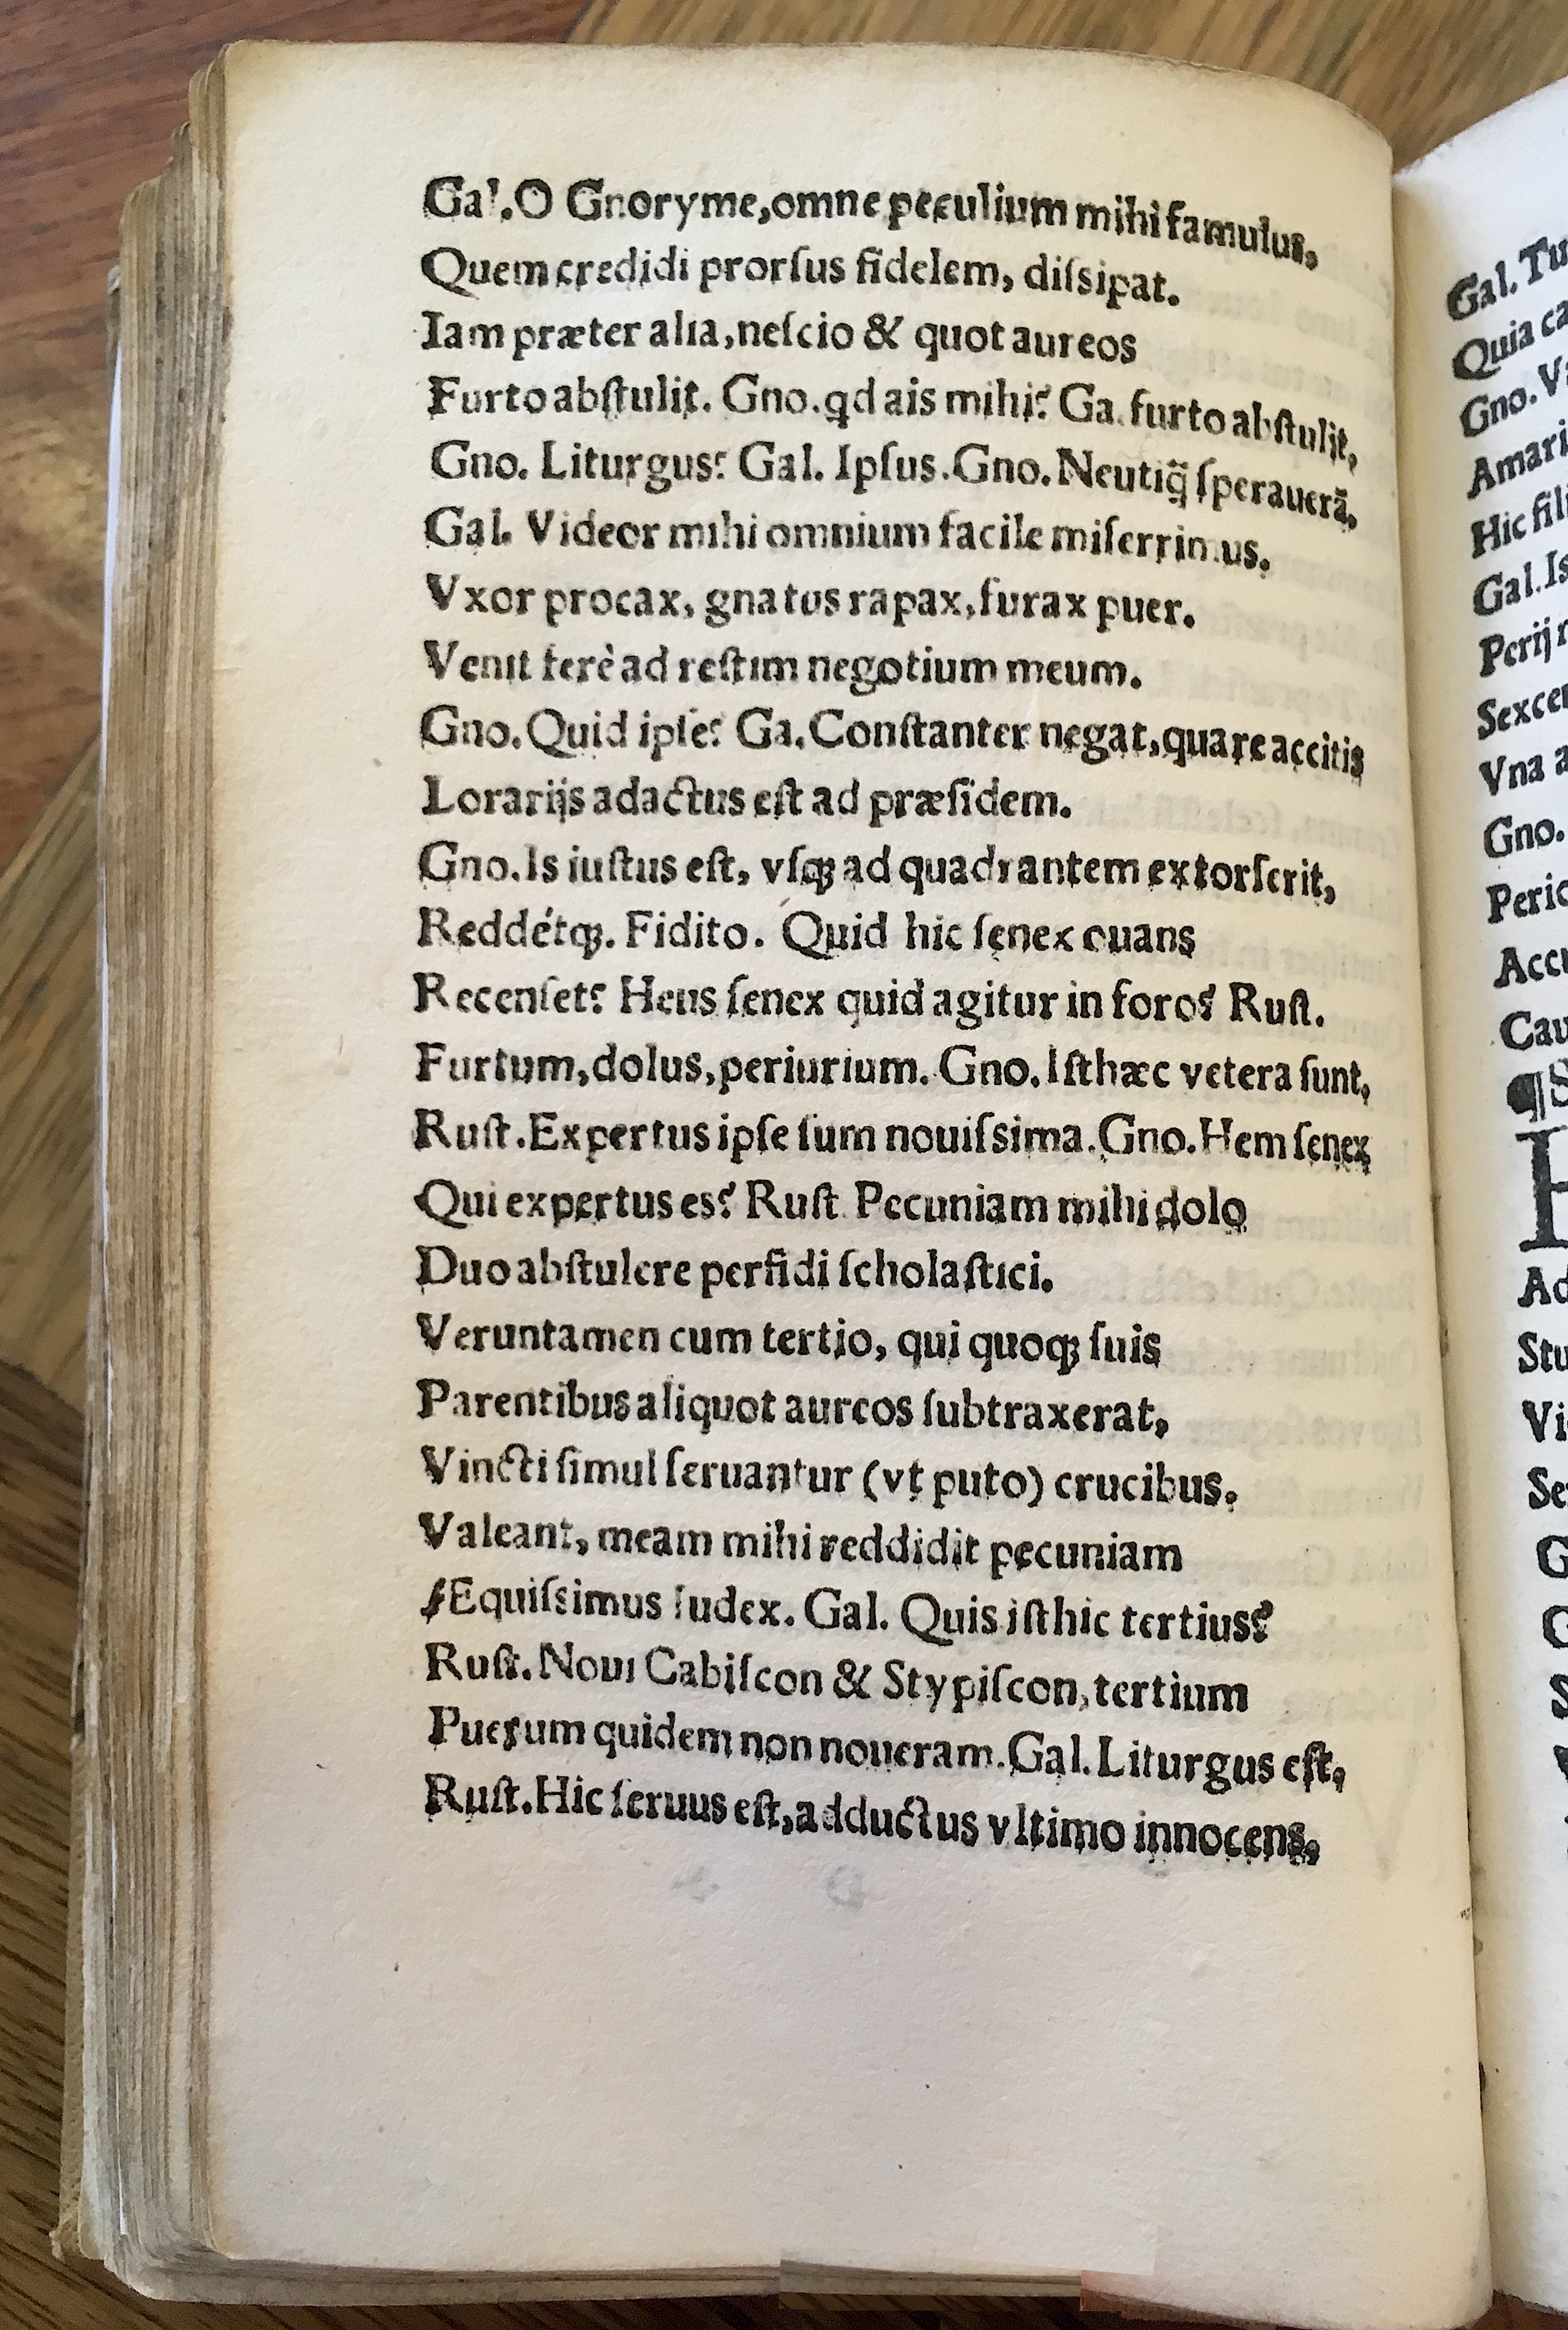 Gal. O Gnoryme, omne peculium mihi famulus,
Quem credidi prorſus fidelem, diſsipat.
Iam præter alia, neſcio & quot aureos
Furto abſtulit. Gno. qd ais mihi? Ga. furto abſtulit,
Gno. Liturgus? Gal. Ipſus. Gno. Neutiq̃ ſperauerã,
Gal. Videor mihi omnium facile miſerrimus.
Vxor procax, gnatus rapax, furax puer.
Venit ferè ad reſtim negotium meum.
Gno. Quid ipſe? Ga. Conſtanter negat, quare accitis
Lorarijs adactus eſt ad præſidem.
Gno. Is iuſtus eſt, vſqꝫ ad quadrantem extorſerit,
Reddétqꝫ. Fidito. Quid hic ſenex ouans
Recenſet? Heus ſenex quid agitur in foro? Ruſt.
Furtum, dolus, periurium. Gno. Iſthæc vetera ſunt,
Ruſt. Expertus ipſe ſum nouiſsima. Gno. Hem ſenex
Qui expertus es? Ruſt. Pecuniam mihi dolo
Duo abſtulere perfidi ſcholaſtici.
Veruntamen cum tertio, qui quoqꝫ ſuis
Parentibus aliquot aureos ſubtraxerat,
Vincti ſimul ſeruantur (vt puto) crucibus.
Valeant, meam mihi reddidit pecuniam
Æquiſsimus Iudex. Gal. Quis iſthic tertius?
Ruſt. Noui Cabiſcon & Stypiſcon, tertium
Puerum quidem non noueram. Gal. Liturgus eſt,
Ruſt. Hic ſeruus eſt, adductus vltimo innocens,
Gal. Tu
Quia
Gno.
Hic
Gal. Is
Perij
Vna
Gno.
¶